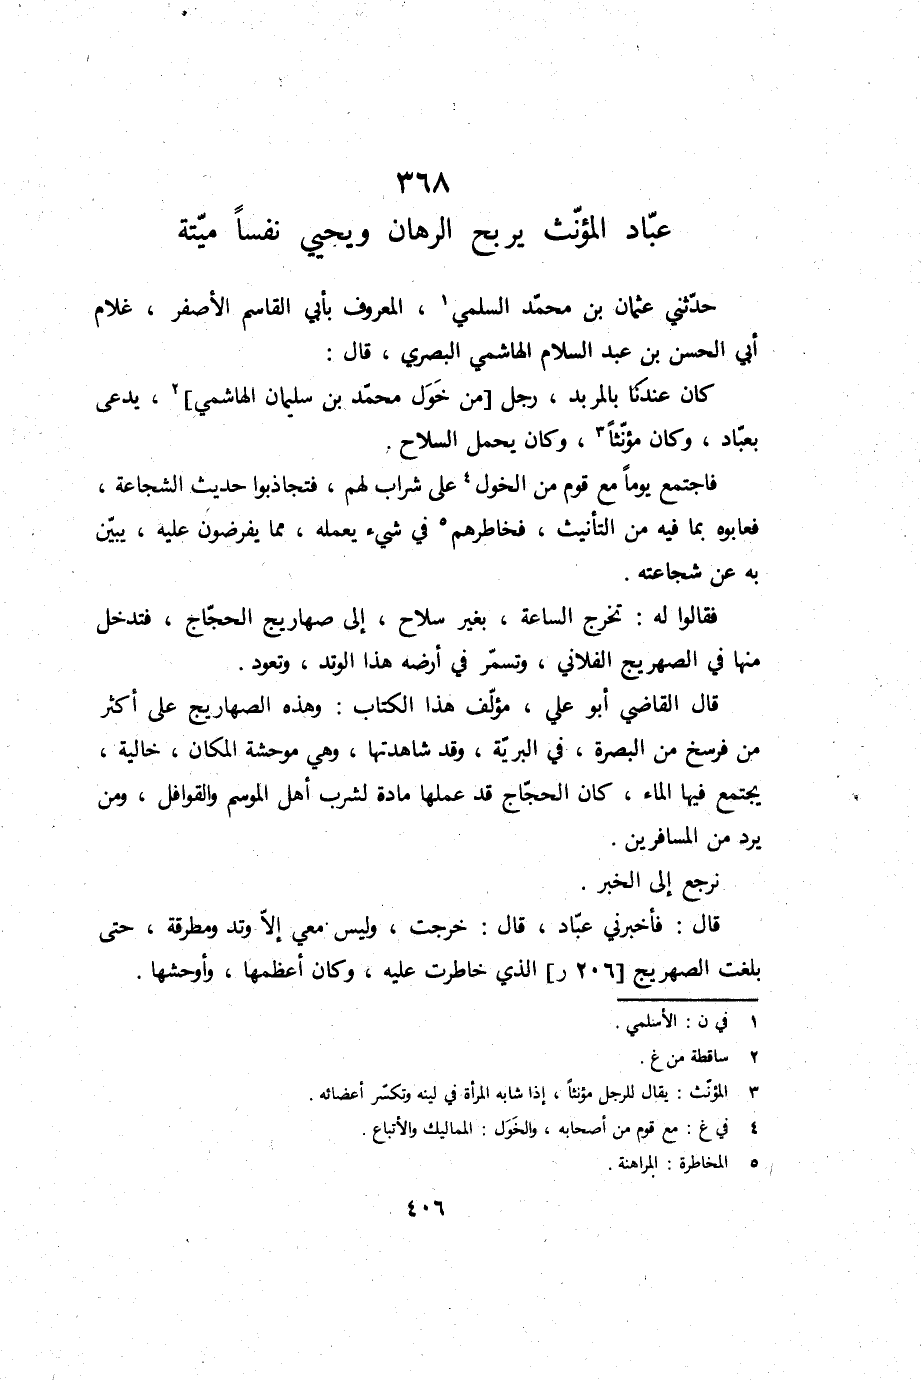 ٣٦٨
عبّاد المؤنّث يربح الرهان ويحيي نفساً ميّتة
حدّثني عثمان بن محمّد السلمي ١ ، المعروف بأبي القاسم الأصفر ، غلام
أبي الحسن بن عبد السلام الهاشمي البصري ، قال :
كان عندنا بالمربد ، رجل [من خَوَل محمّد بن سليمان الهاشمي] ٢ ، يدعى
بعبّاد ، وكان مؤنّثاً ٣ ، وكان يحمل السلاح .
فاجتمع يوماً مع قوم من الخول ٤ على شراب لهم ، فتجاذبوا حديث الشجاعة ،
فعابوه بما فيه من التأنيث ، فخاطرهم ٥ في شيء يعمله ، مما يفرضون عليه ، يبيّن
به عن شجاعته .
فقالوا له : تخرج الساعة ، بغير سلاح ، إلى صهاريج الحجّاج ، فتدخل
منها في الصهريج الفلاني ، وتسمّر في أرضه هذا الوتد ، وتعود .
قال القاضي أبو علي ، مؤلّف هذا الكتاب : وهذه الصهاريج على أكثر
من فرسخ من البصرة ، في البريّة ، وقد شاهدتها ، وهي موحشة المكان ، خالية ،
يجتمع فيها الماء ، كان الحجّاج قد عملها مادة لشرب أهل الموسم والقوافل ، ومن
يرد من المسافرين .
نرجع إلى الخبر .
قال : فأخبرني عبّاد ، قال : خرجت ، وليس معي إلاّ وتد ومطرقة ، حتى
بلغت الصهريج [٢٠٦ ر] الذي خاطرت عليه ، وكان أعظمها ، وأوحشها .
١ في ن : الأسلمي .
٢ ساقطة من غ .
٣ المؤنّث : يقال للرجل مؤنثاً ، إذا شابه المرأة في لينه وتكسّر أعضائه .
٤ في غ : مع قوم من أصحابه ، والخَوَل : المماليك والأتباع .
٥ المخاطرة : المراهنة .
٤٠٦